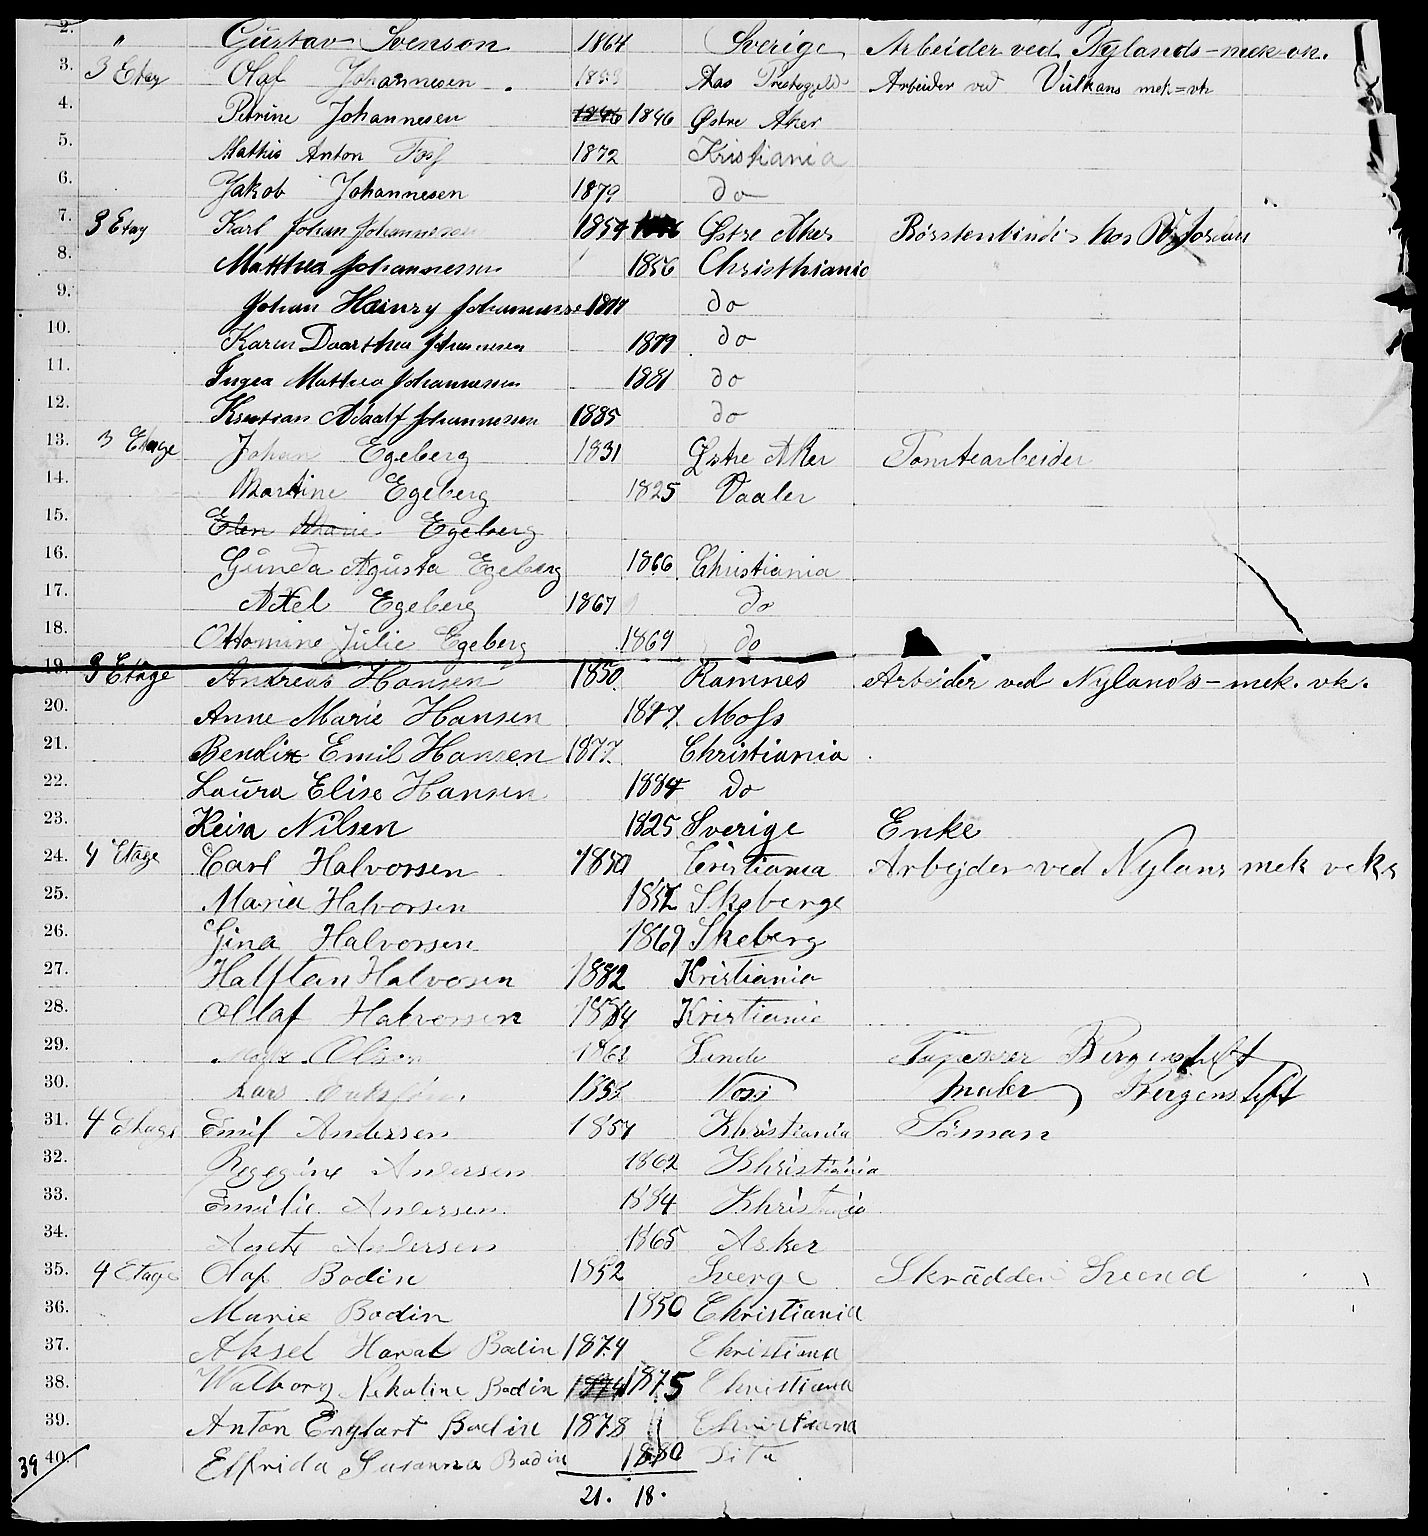 2. " Gustav Svenson 1864 Sverige Arbeider ved Nylands-mek-vk.
3. 3 Etag Olaf Johannesen Aas Prestegjeld Arbeider ved Vulkans mek=vk
4. Petrine Johannesen 1846 1846 Østre Aker
5. Mathis Anton Foss 1872 Kristiania
6. Jakob Johannesen 1879 do
7. 3 Etag Karl Johan Johannesen 1854 Østre Aker Børstenbinder hos
8. Matthea Johannessen 1856 Christhiania
9. Johan Hainry Johannessen do
10. Karen Doorthea Johannesen 1879 do
11. Ingea Mathea Johannessen 1881 do
12. Kristian Adaalf Johannessen 1885 do
13. 3 Etage Johan Egeberg 1831 Østre Aker Tomtearbeider
14. Martine Egeberg 1825 Vaaler
15. Elen Marie Egeberg
16. Gunda Agusta Egeberg 1866 Christiania
17. Axel Egeberg 1867 do
18. Ottomine Julie Egeberg 1869 do
19. 3 Etage Andreas Hansen 1850 Ramnes Arbeider ved Nylands-mek. vk.
20. Anne Marie Hansen 1847 Moss
21. Bendix Emil Hansen 1877 Christiania
22. Laura Elise Hansen 1884 do
23. Keisa Nilsen 1825 Sverige Enke
24. 4 Etage Carl Halvorsen 1850 Cristiania Arbejder ved Nylans mek veks
25. Maria Halvorsen 1852 Skeberge
26. Gina Halvorsen 1869 Skeberg
27. Halftan Halvosen 1882 Kristiania
28. Ollaf Halvorsen 1884 Kristianie
29. Olsen 1863 Sande Bergenstift
30. Lars 1853 Voss Bergens stift
31. 4 Etage Emil Andersen 1857 Khristiania Söman
32. Regegine Andersen 1862 Khristiania
33. Emilie Andersen 1884 Khristiania
34. Agete Andersen 1865 Asker
35. 4 Etage Olaf Bodin 1852 Sverge Skrädder Svend
36. Marie Bodin 1850 Christiania
37. Aksel Harat Bodin 1874 Christiana
38. Walborg Nikoline Bodin 1874 1875 Christiana
39. Anton Englart Bodin 1878 Christiana
40. Elfrida Susanna Bodin 1880 Dito
39
21. 18.